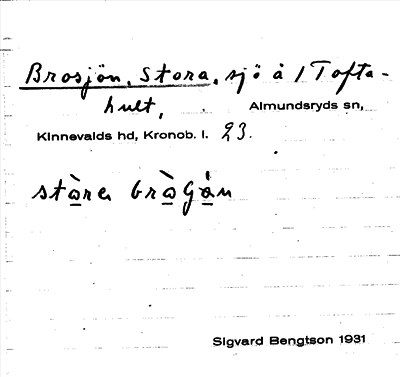 Brosjön, Stora, sjö å 1 Tofta-
hult, Almundsryds sn,
Kinnevalds hd, Kronob. l. 23.
stàra bràGàn
Sigvard Bengtson 1931